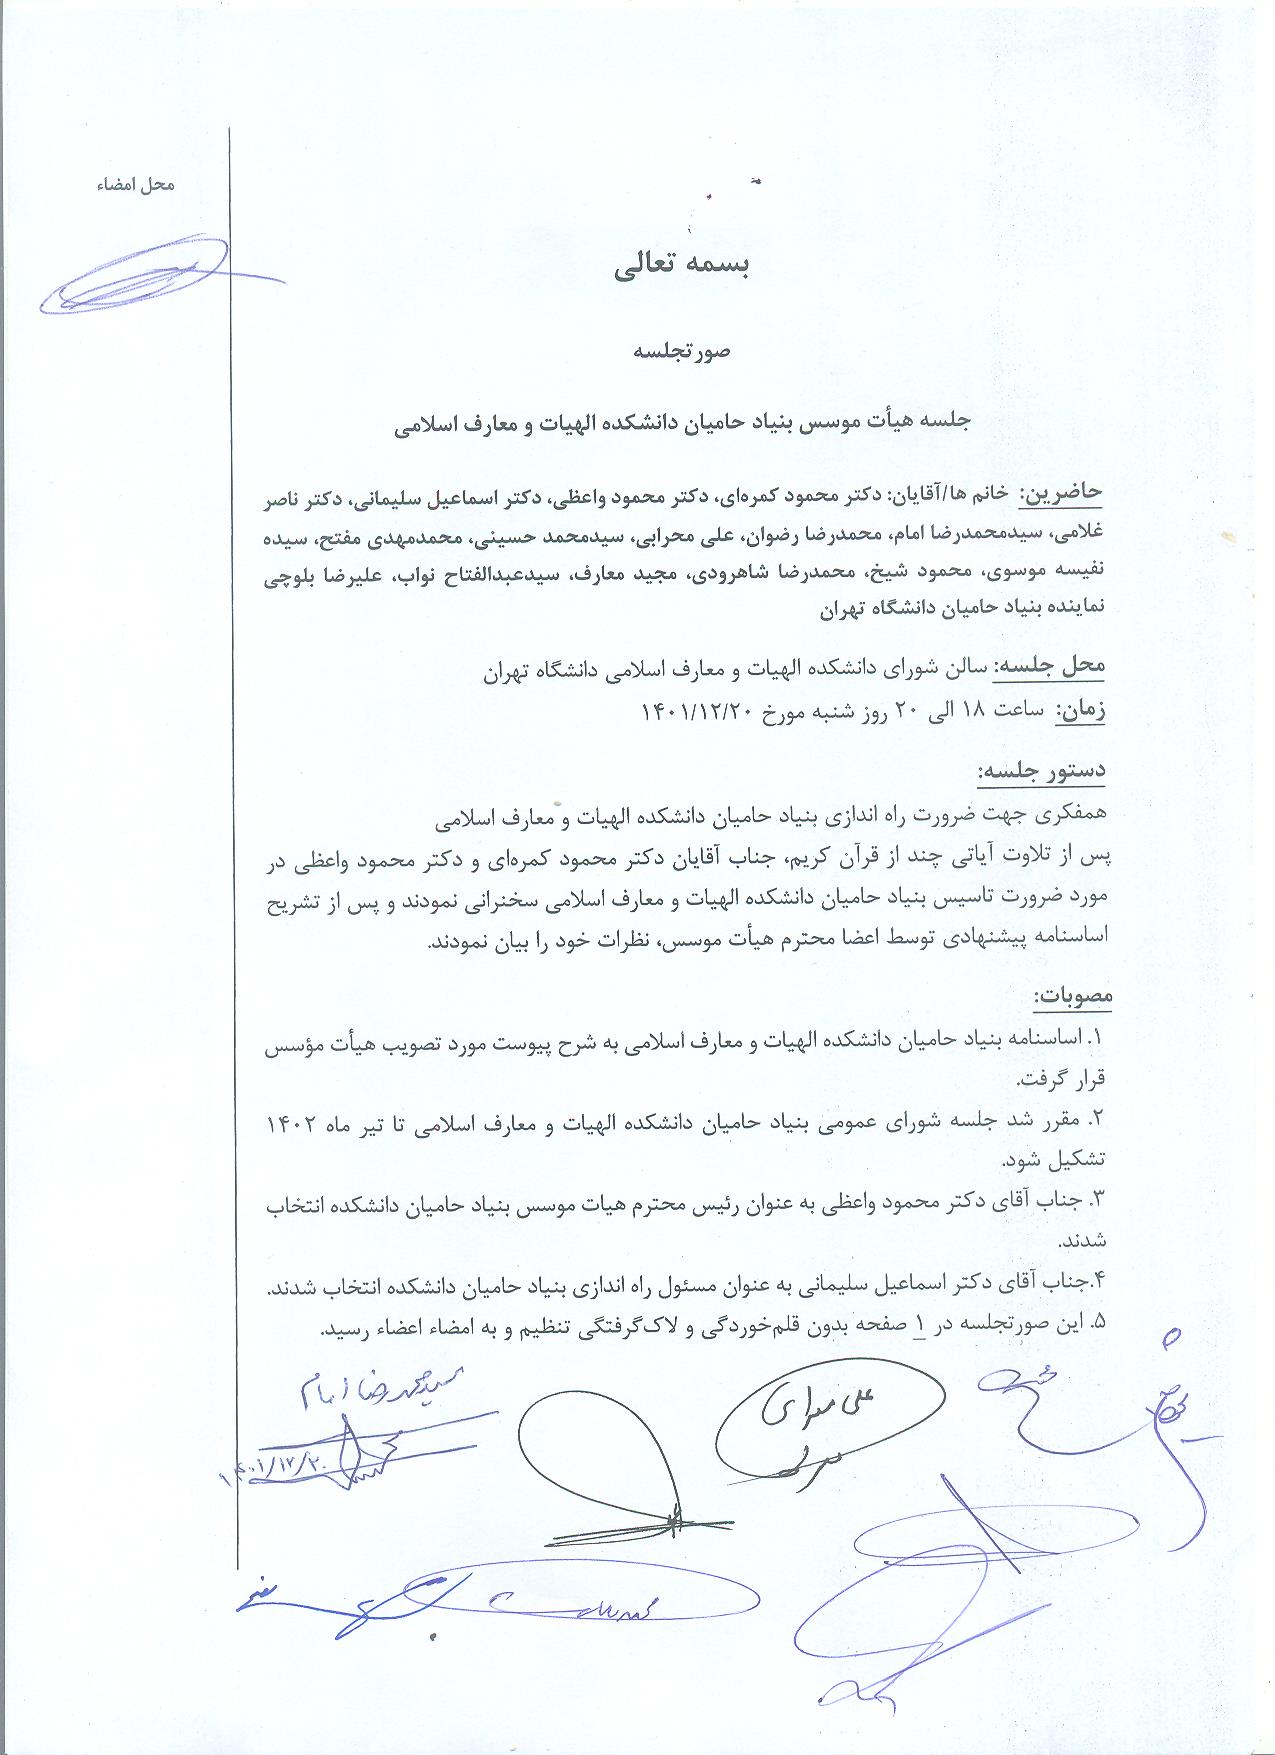 محل امضاء
بسمه تعالی
صورتجلسه
جلسه هیأت موسس بنیاد حامیان دانشکده الهیات و معارف اسلامی
حاضرین: خانم ها/آقایان: دکتر محمود کمره‌ای، دکتر محمود واعظی، دکتر اسماعیل سلیمانی، دکتر ناصر
غلامی، سیدمحمدرضا امام، محمدرضا رضوان، علی محرابی، سیدمحمد حسینی، محمدمهدی مفتح، سیده
نفیسه موسوی، محمود شیخ، محمدرضا شاهرودی، مجید معارف، سیدعبدالفتاح نواب، علیرضا بلوچی
نماینده بنیاد حامیان دانشگاه تهران
محل جلسه: سالن شورای دانشکده الهیات و معارف اسلامی دانشگاه تهران
زمان: ساعت ۱۸ الی ۲۰ روز شنبه مورخ ۱۴۰۱/۱۲/۲۰
دستور جلسه:
همفکری جهت ضرورت راه اندازی بنیاد حامیان دانشکده الهیات و معارف اسلامی
پس از تلاوت آیاتی چند از قرآن کریم، جناب آقایان دکتر محمود کمره‌ای و دکتر محمود واعظی در
مورد ضرورت تاسیس بنیاد حامیان دانشکده الهیات و معارف اسلامی سخنرانی نمودند و پس از تشریح
اساسنامه پیشنهادی توسط اعضا محترم هیأت موسس، نظرات خود را بیان نمودند.
مصوبات:
۱. اساسنامه بنیاد حامیان دانشکده الهیات و معارف اسلامی به شرح پیوست مورد تصویب هیأت مؤسس
قرار گرفت.
۲. مقرر شد جلسه شورای عمومی بنیاد حامیان دانشکده الهیات و معارف اسلامی تا تیر ماه ۱۴۰۲
تشکیل شود.
۳. جناب آقای دکتر محمود واعظی به عنوان رئیس محترم هیات موسس بنیاد حامیان دانشکده انتخاب
شدند.
۴.جناب آقای دکتر اسماعیل سلیمانی به عنوان مسئول راه اندازی بنیاد حامیان دانشکده انتخاب شدند.
۵. این صورتجلسه در ۱ صفحه بدون قلم‌خوردگی و لاک‌گرفتگی تنظیم و به امضاء اعضاء رسید.
سیدمحمدرضا امام
علی محرابی
۱۴۰۱/۱۲/۲۰